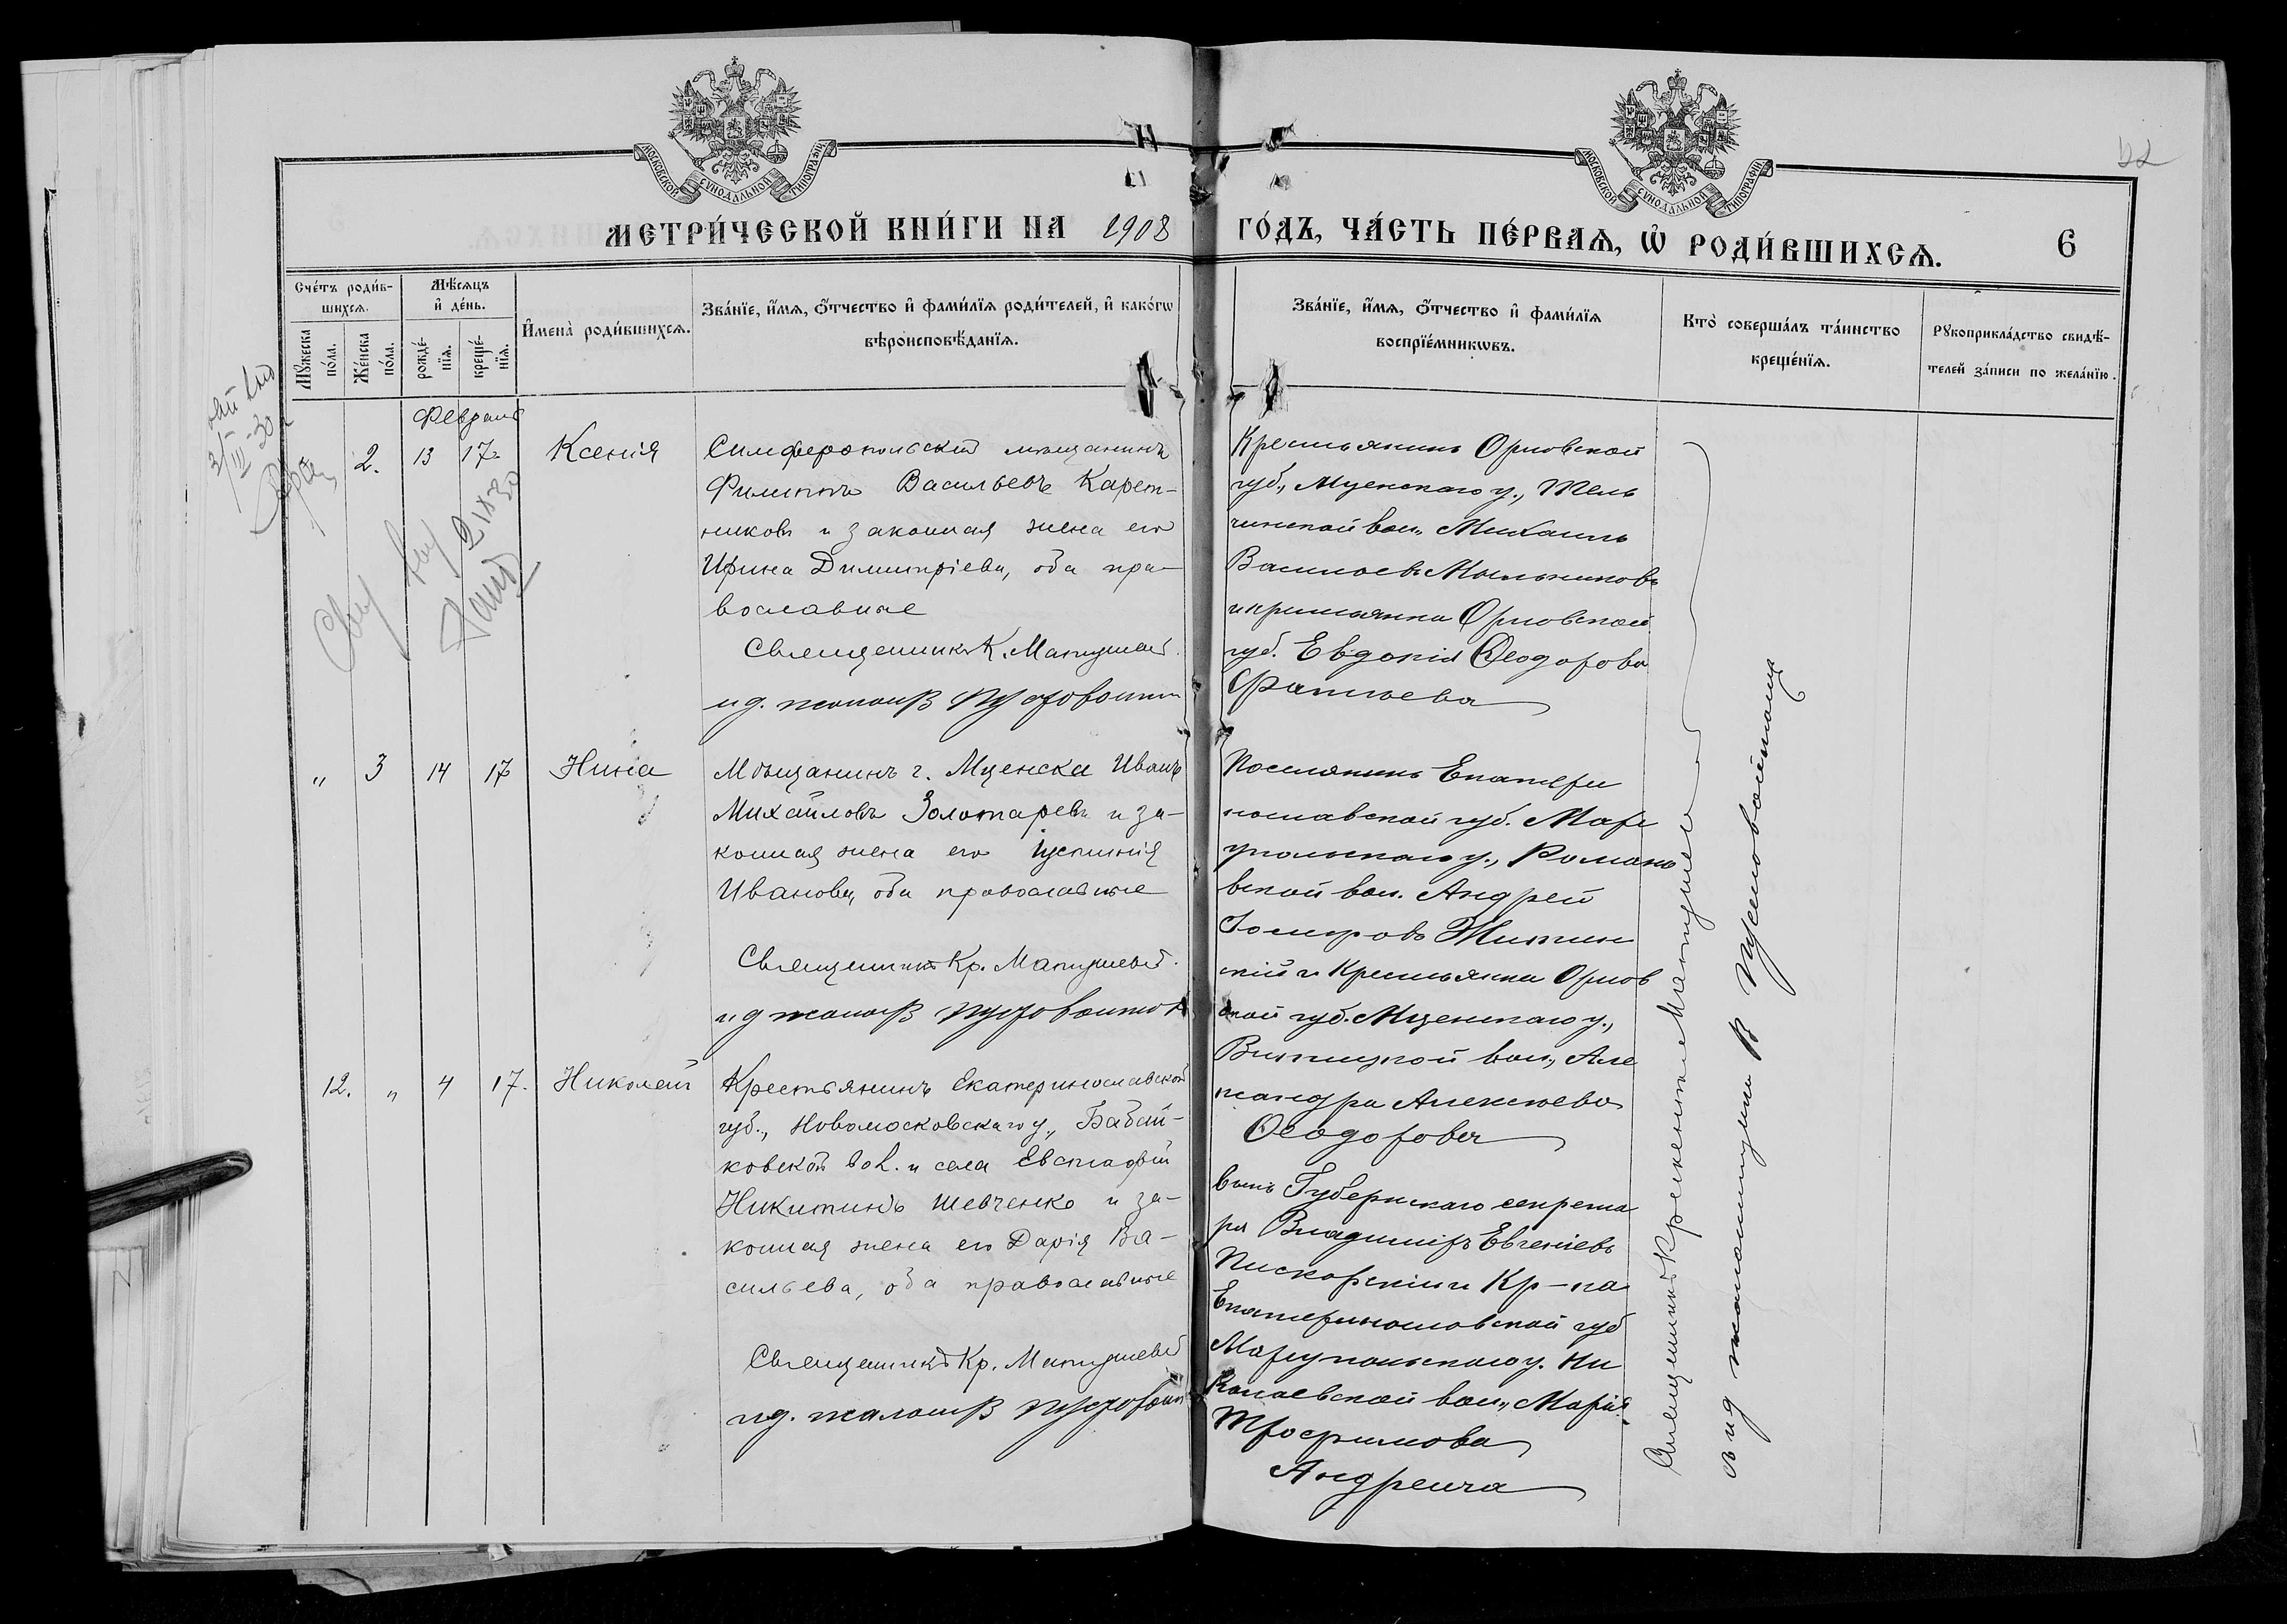 МОСКОВСКОЙ СѴНОДАЛЬНОЙ ТИПОГРАФІИ
МОСКОВСКОЙ СѴНОДАЛЬНОЙ ТИПОГРАФІИ
МЕТРИ́ЧЕСКОЙ КНИ́ГИ НА 1908 ГО́ДЪ, ЧА́СТЬ ПЕ́РВАѦ, Ѡ҆ РОДИ́ВШИХСѦ.
6
Сче́тъ роди́в-
шихсѧ.
Мѣ́сѧцъ
и҆ де́нь.
Мꙋ́жеска
по́ла.
Же́нска
по́ла.
рожде́-
нїѧ.
креще́-
нїѧ.
И҆мена̀ роди́вшихсѧ.
Зва́нїе, и҆́мѧ, ѻ҆́тчество и҆ фами́лїѧ роди́телей, и҆ како́гѡ
вѣроисповѣ́данїѧ.
Зва́нїе, и҆́мѧ, ѻ҆́тчество и҆ фами́лїѧ
воспрїе́мникѡвъ.
Кто̀ соверша́лъ та́инство
креще́нїѧ.
Рꙋкоприкла́дство свидѣ́-
телей за́писи по жела́нїю.
Февраль
2. 13 17. Ксенія
Симферопольскій мѣщанинъ
Филиппъ Васильевъ Карет-
никовъ и законная жена его
Ирина Димитріева, оба пра-
вославные
Священникъ К. Матушевъ
и д. псаломщ. В Пустовойтовъ
Крестьянинъ Орловской
губ., Мценскаго у., Тель
чинской вол., Михаилъ
Васильевъ Мыльниковъ
и крестьянка Орловской
губ. Евдокія Ѳеодорова
" 3 14 17 Нина
Мѣщанинъ г. Мценска Иванъ
Михайловъ Золотаревъ и за-
конная жена его Іустинія
Иванова, оба православные
Священникъ Кр. Матушевъ.
и д псаломщ. В Пустовойтовъ
Поселянинъ Екатери
нославской губ. Марі
упольскаго у., Романо
вской вол. Андрей
скій и Крестьянка Орлов
ской губ. Мценскаго у.,
вол., Але
ксандра Алексѣева
Ѳеодорова
12. " 4 17. Николай
Крестьянинъ Екатеринославской
губ., Новомосковскаго у., Бабай-
ковской вол. и села Евстафій
Никитинъ Шевченко и за-
конная жена его Дарія Ва-
сильева, оба православные
Священникъ Кр. Матушевъ
и д. псаломщ. В Пустовойт
сынъ Губернскаго секрета
ря Владиміръ Евгеніевъ
Пискорскій и Кр-ка
Екатеринославской губ
Маріупольскаго у. Ни
колаевской вол., Марія
Трофимова
Андреича
Священникъ Крискентъ Матушевъ
съ и д псаломщика В Пустовойтовымъ